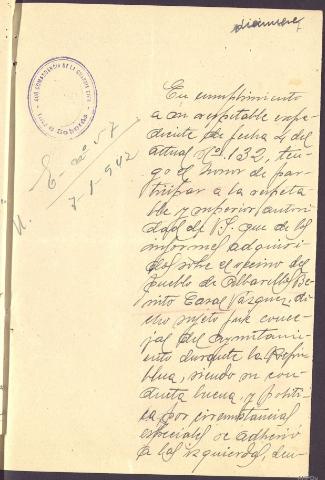 diciembre
COMANDANCIA DE LA GUARDIA CIVIL
E- nº 57
7-1-942
En cumplimiento
a su respetable expe-
diente de fecha 4 del
actual Nº 132, ten-
go el honor de par-
ticipar a la respeta-
ble y superior autori-
dad de V.S. que de los
informes adquiri-
dos sobre el vecino del
pueblo de Albarellos Be-
nito Casas Vazquez, di-
cho sujeto fué conce-
jal del ayuntami-
ento durante la Repú-
blica, siendo su con-
ducta buena, y políti-
ca por circunstancias
especiales se adhirió
a las izquierdas, den-